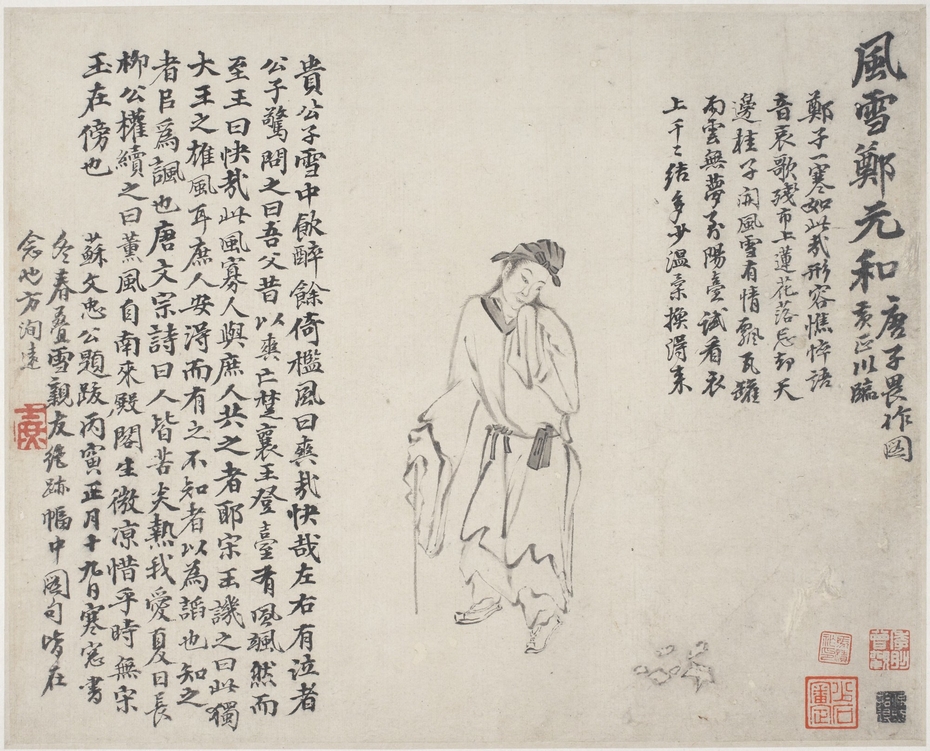 風雪鄭元和
唐子畏作圖
臨
鄭子一寒如此哉形容憔悴語
音哀歌殘市上蓮花落忘却天
邊桂子開風雪有情飄瓦罐
雨雲無夢陽臺試看衣
上千〻結多少温柔換淂來
貴公子雪中飲醉餘倚檻風曰爽哉快哉左右有泣者
公子驚問之曰吾父昔以爽亡楚襄王登臺有風颯然而
至王曰快哉此風寡人與庶人共之者耶宋玉譏之曰此獨
大王之雄風耳庶人安淂而有之不知者以為諂也知之
者以爲諷也唐文宗詩曰人皆苦炎熱我愛夏日長
柳公權續之曰薰風自南來殿閣生微凉惜乎時無宋
玉在傍也
蘇文忠公題跋丙寅正月十九日寒窓書
冬春疊雪親友絶跡幅中圖句皆在
念也方洵遠
審定